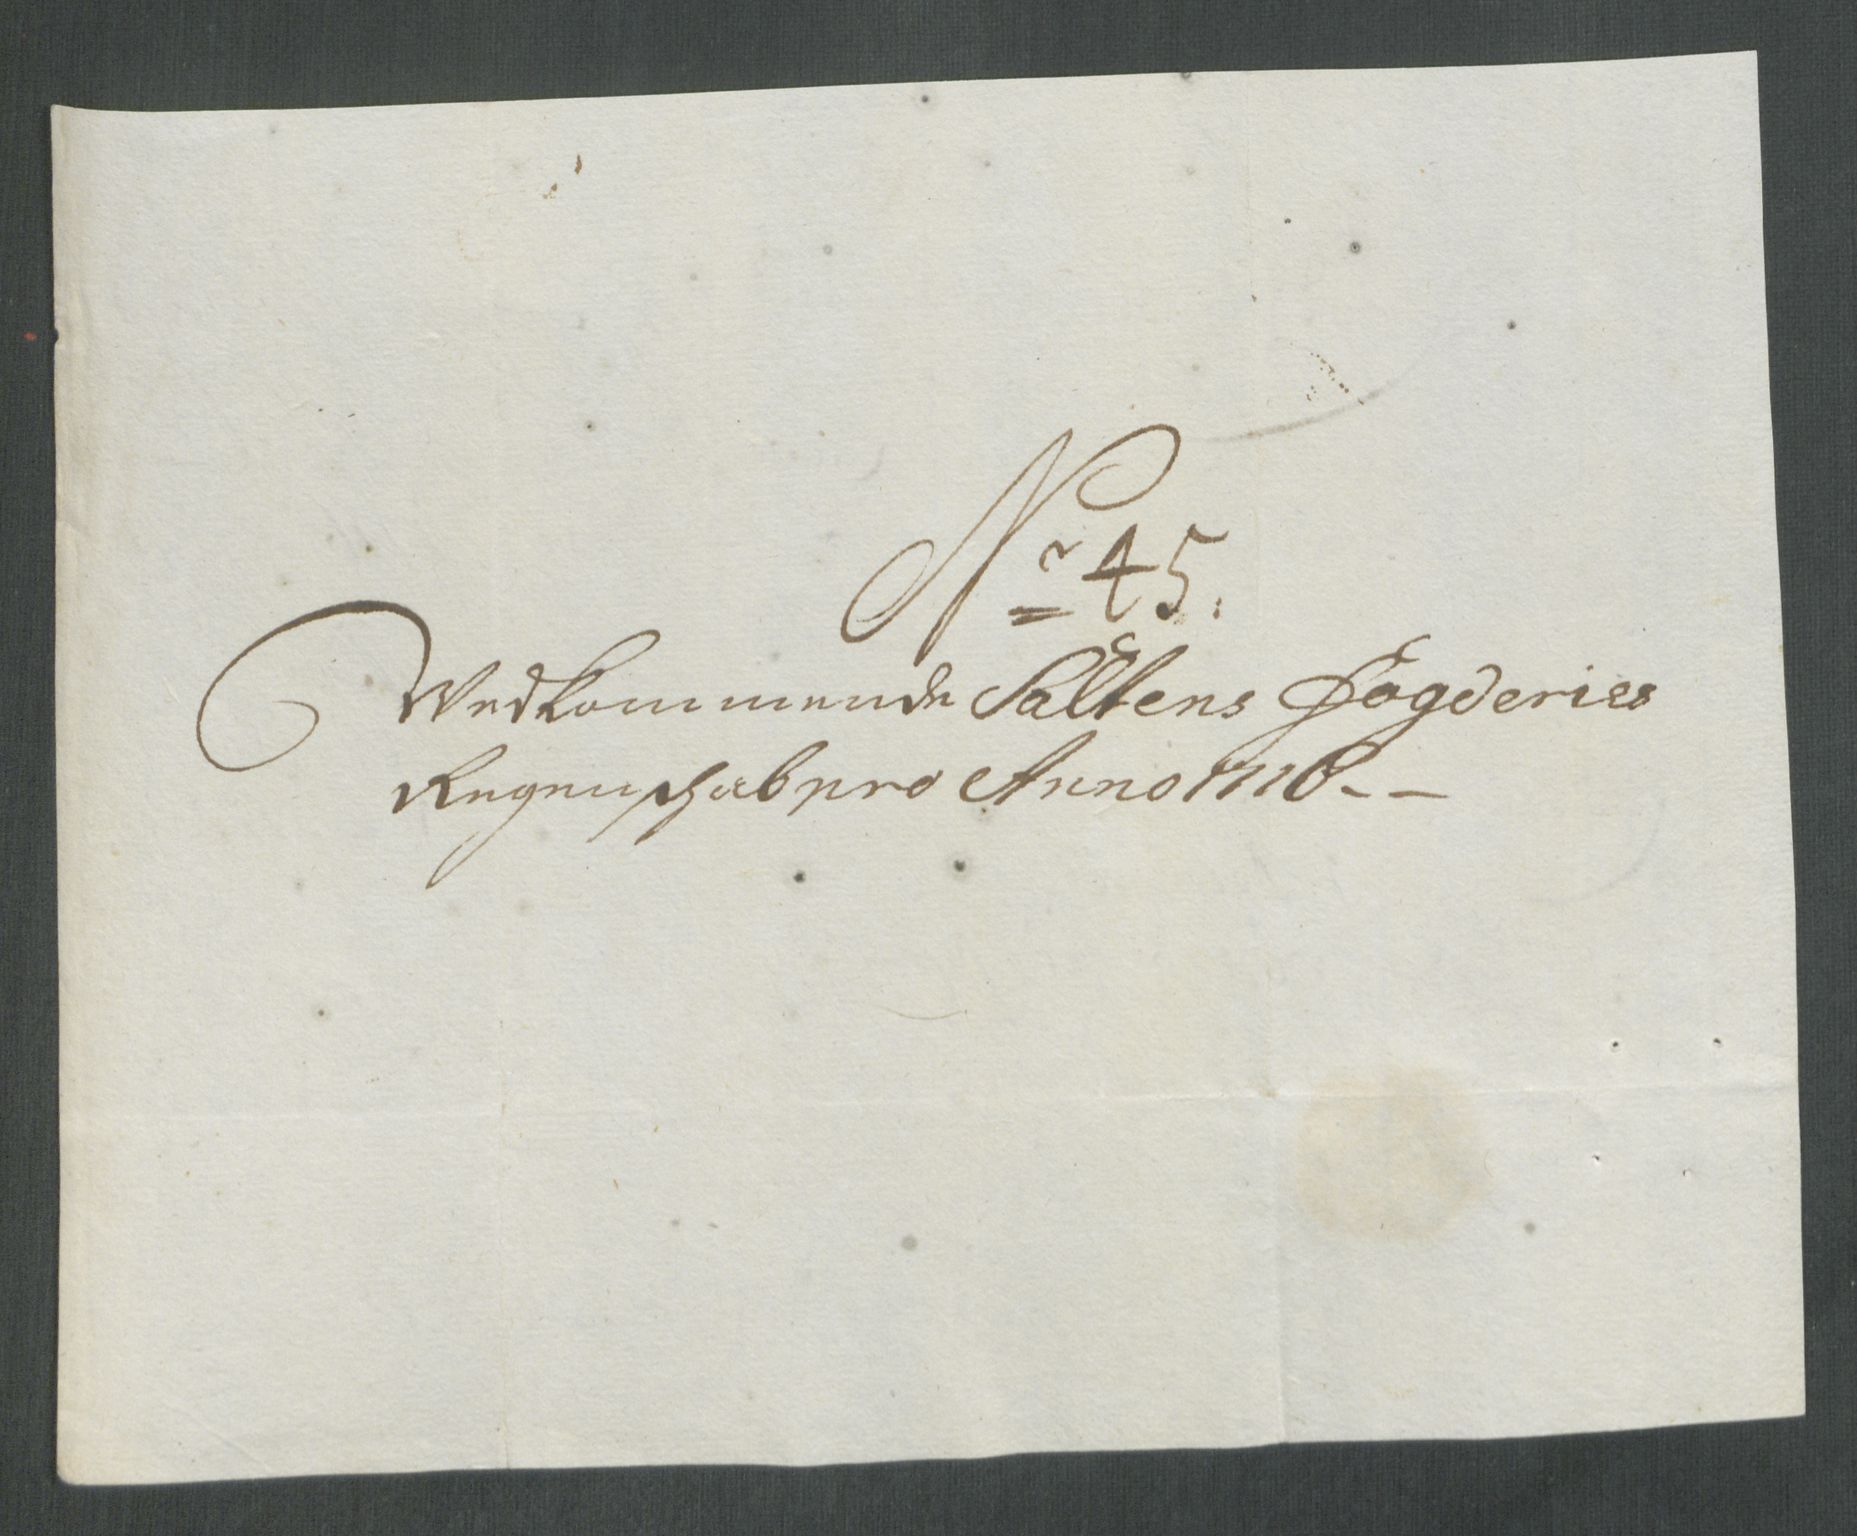 No 45.
Wedkommende Saltens Fogderies
Regenschab pro Anno 1716 - -